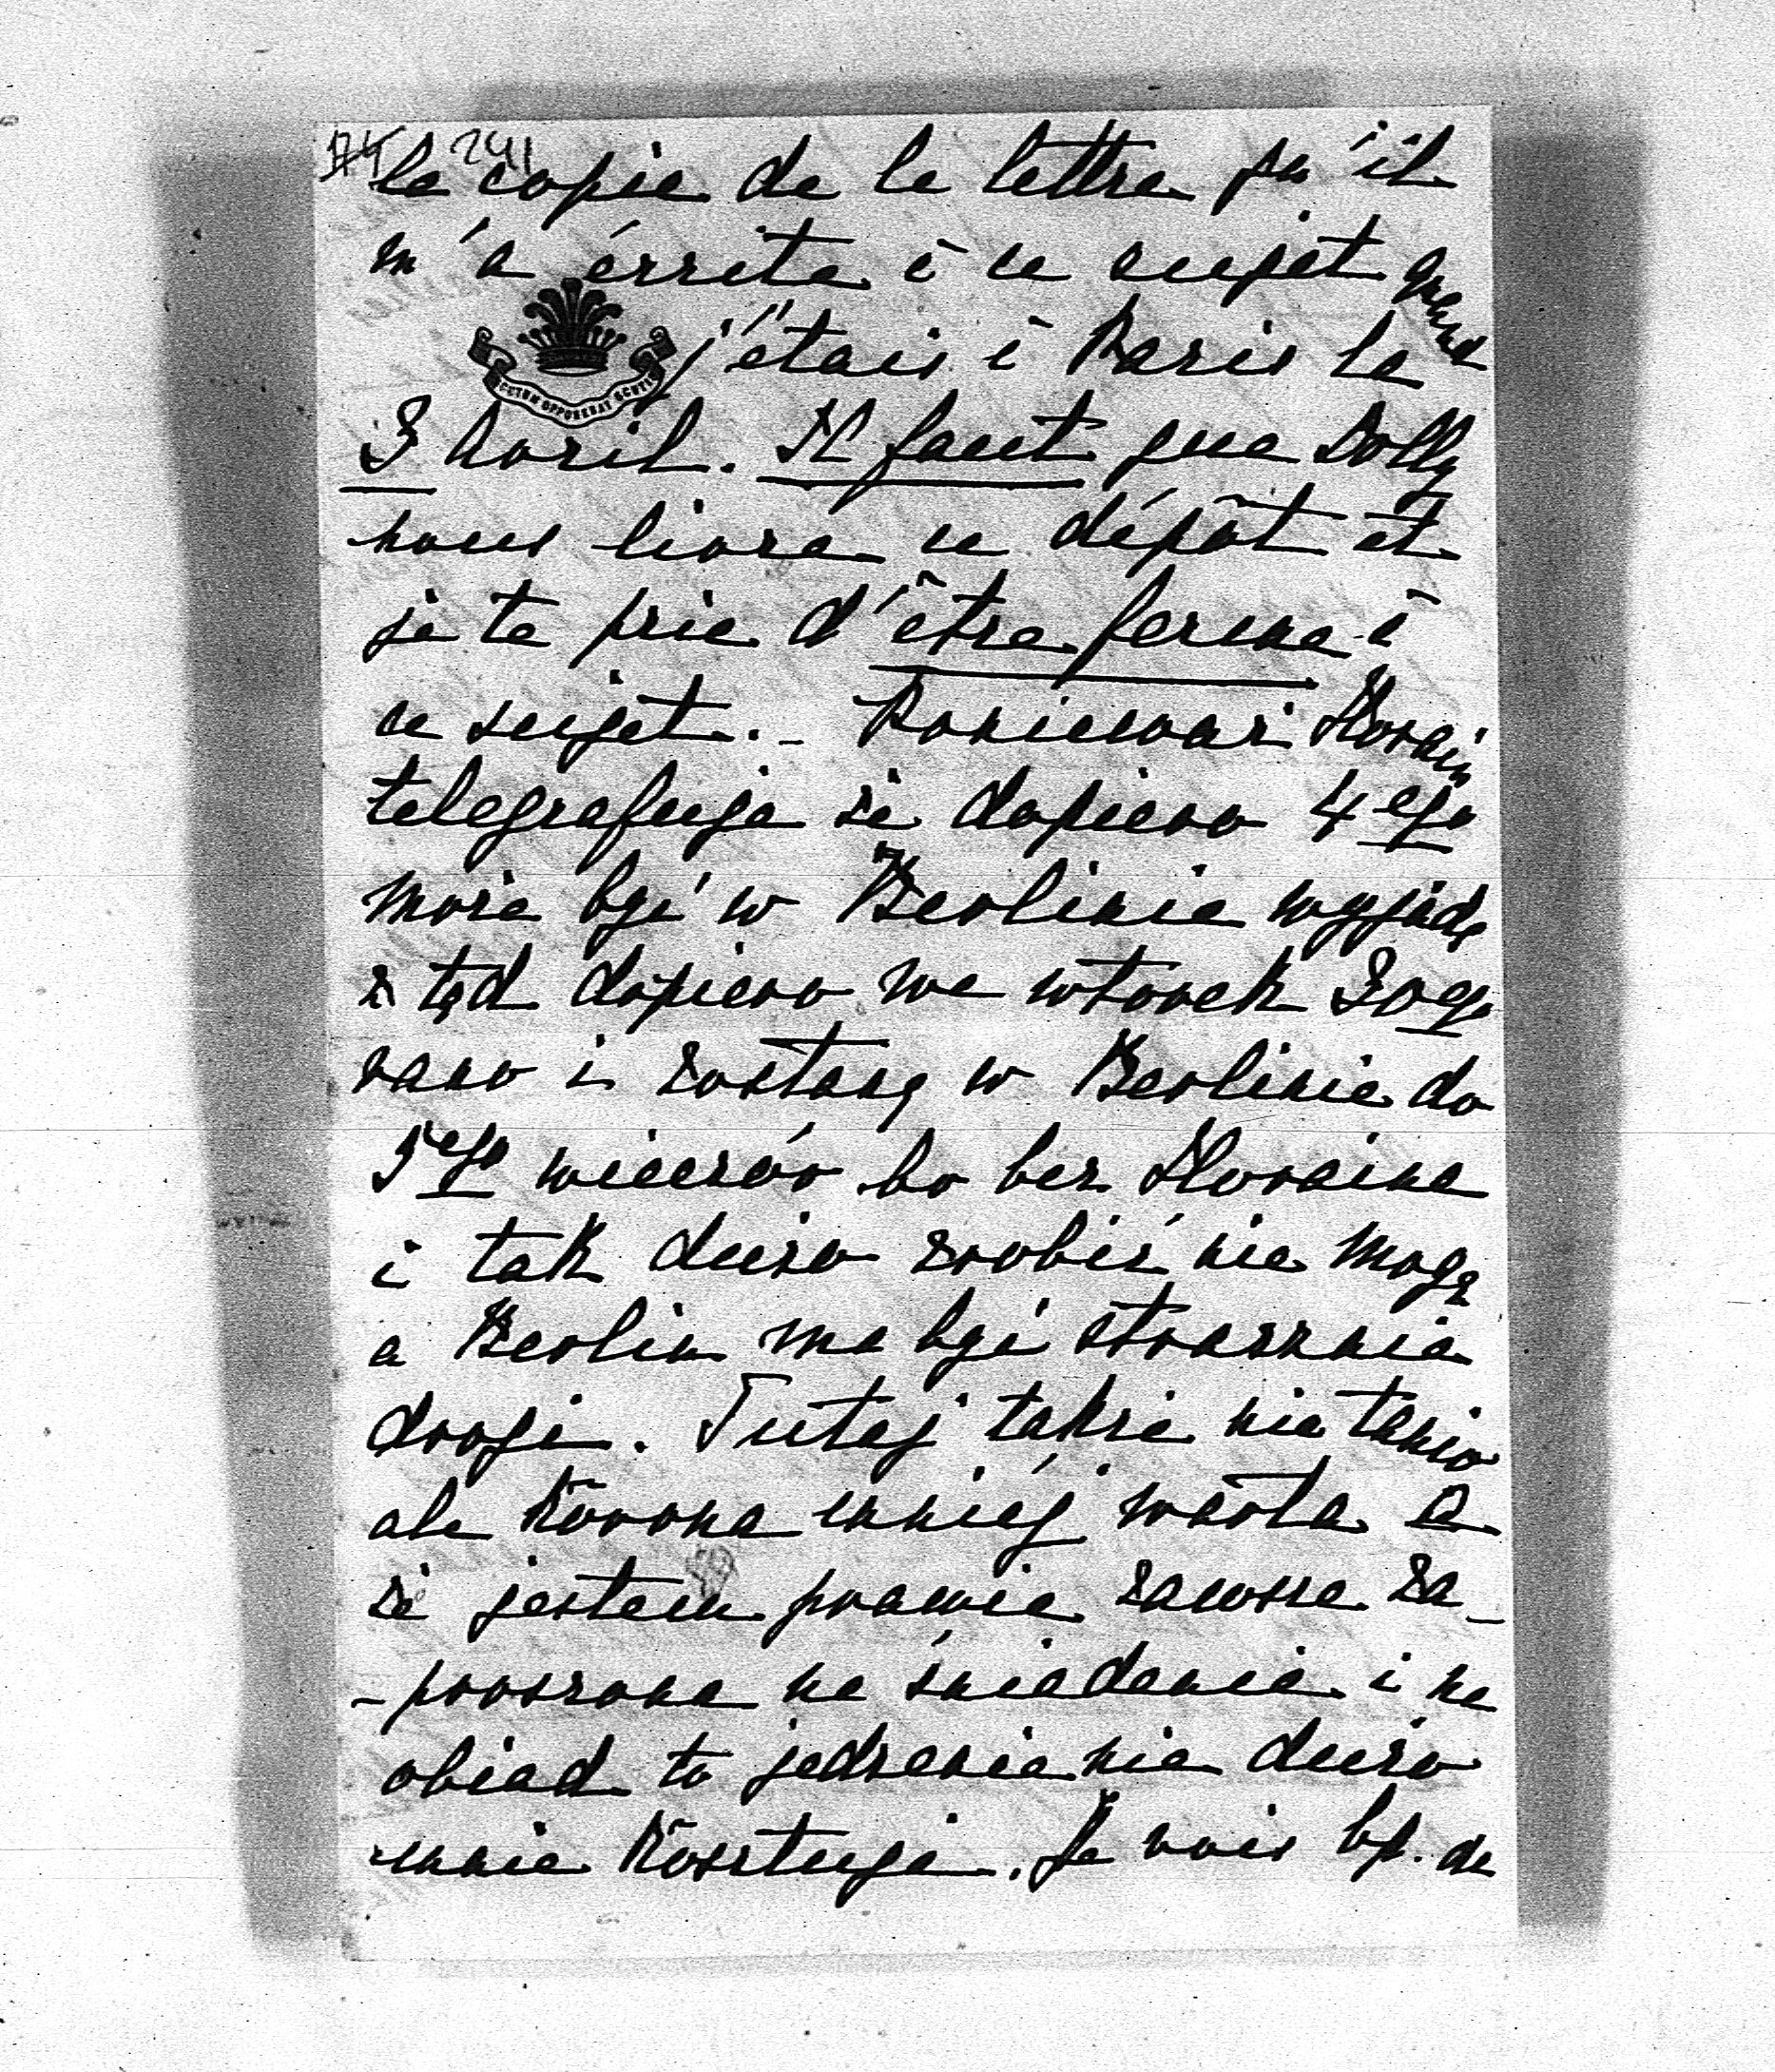 241
la copie de la lettre qu'il
m'a écrite à ce sujet quand
j'étais à Paris le
3 Avril. Il faut que Dolly
nous livre ce dépôt et
je te prie d'être ferme à
ce sujet. - Ponieważ Horain
telegrafuje że dopiero 4ego
może być w Berlinie wyjadę
z tąd dopiero we wtorek 3ego
rano i zostanę w Berlinie do
5ego wieczór bo bez Horaina
i tak dużo zrobić nie mogę
a Berlin ma być strasznie
drogi. Tutaj także nie tanio
ale Korona mniéj warta a
że jestem prawie zawsze za-
-proszona na śniadania i na
obiad to jedzenie nie dużo
mnie kosztuje. Je vois bp. de